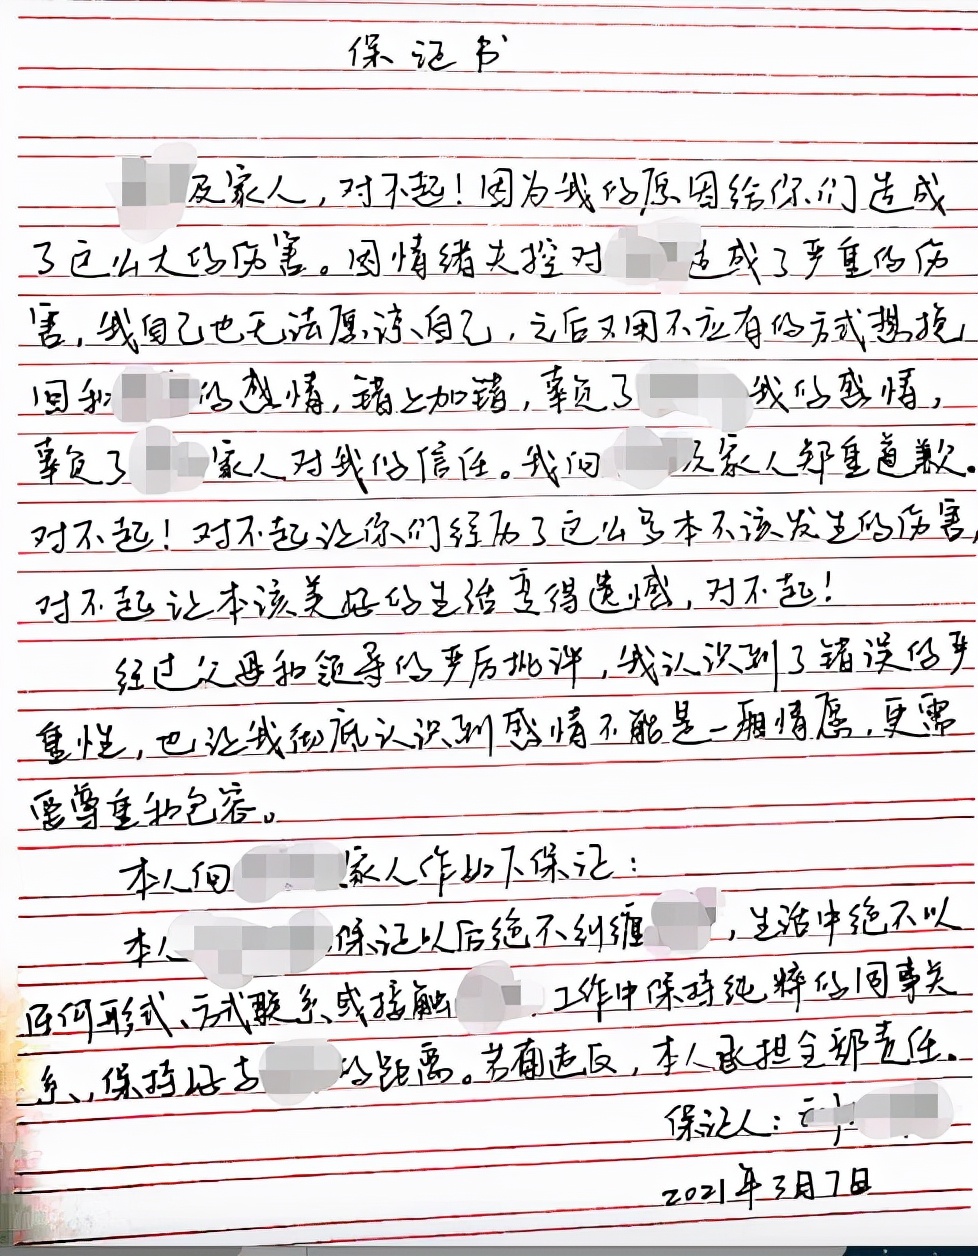 保证书
及家人，对不起！因为我的原因给你们造成
了这么大的伤害。因情绪失控对 造成了严重的伤
害，我自己也无法原谅自己，之后又用不应有的方式想挽
回和 的感情，错上加错，辜负了 我的感情，
辜负了 家人对我的信任。我向 及家人郑重道歉。
对不起！对不起让你们经历了这么多本不该发生的伤害，
对不起让本该美好的生活变得遗憾，对不起！
经过父母和领导的严厉批评，我认识到了错误的严
重性，也让我彻底认识到感情不能是一厢情愿，更需
要尊重和包容。
本人向 家人作如下保证：
本人 保证以后绝不纠缠 ，生活中绝不以
任何形式、方式联系或接触 . 工作中保持纯粹的同事关
系，保持好与 的距离。若有违反，本人承担全部责任。
保证人：
2021年3月7日